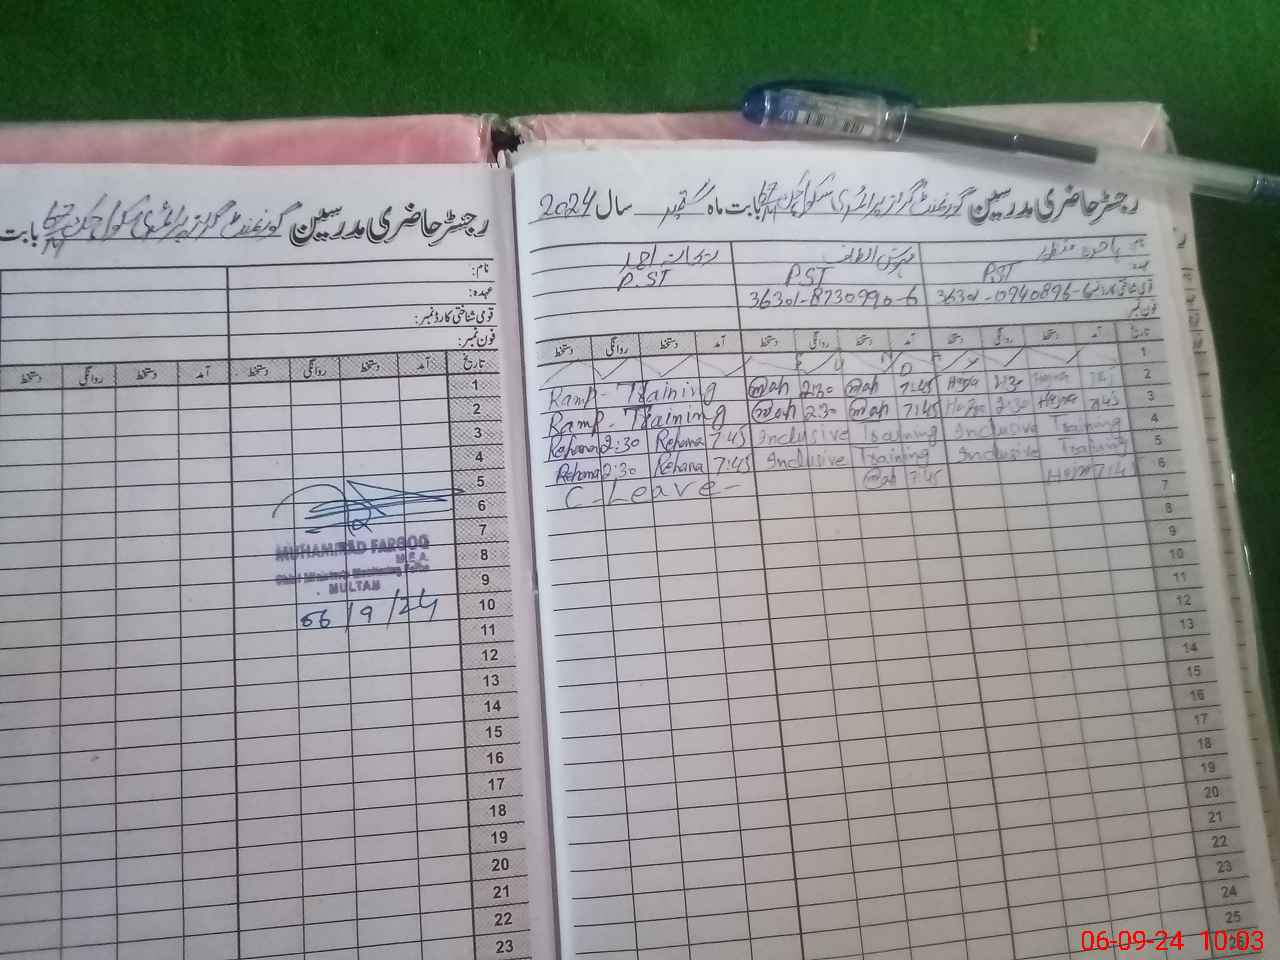 رجسٹر حاضری مدرسین گورنمنٹ گرلز پرائمری سکول بابت
نام:
عہدہ:
قومی شناختی کارڈ نمبر:
فون نمبر:
تاریخ آمد دستخط روانگی دستخط آمد دستخط روانگی دستخط
1
2
3
4
5
6
7
8
9
10
11
12
13
14
15
16
17
18
19
20
21
22
23
MUHAMMAD FAROOQ
M.E.A.
Chief Minister's Monitoring Force
MULTAN
06/9/24
رجسٹر حاضری مدرسین گورنمنٹ گرلز پرائمری سکول بابت ماہ ستمبر سال 2024
نام
P.ST P.ST P.ST
36301-8730990-6 36301-0940896-6
فون نمبر
تاریخ آمد دستخط روانگی دستخط آمد دستخط روانگی دستخط آمد دستخط روانگی دستخط
1
Ramp-Training 2:30 7:45 2:30 2
Ramp-Training 2:30 7:45 2:30 7:45 3
Rehana 2:30 Rehana 7:45 Inclusive Training Inclusive Training 4
Rehana 2:30 Rehana 7:45 Inclusive Training Inclusive Training 5
C-Leave- 7:45 7:45 6
7
8
9
10
11
12
13
14
15
16
17
18
19
20
21
22
23
24
25
26
06-09-24 10:03